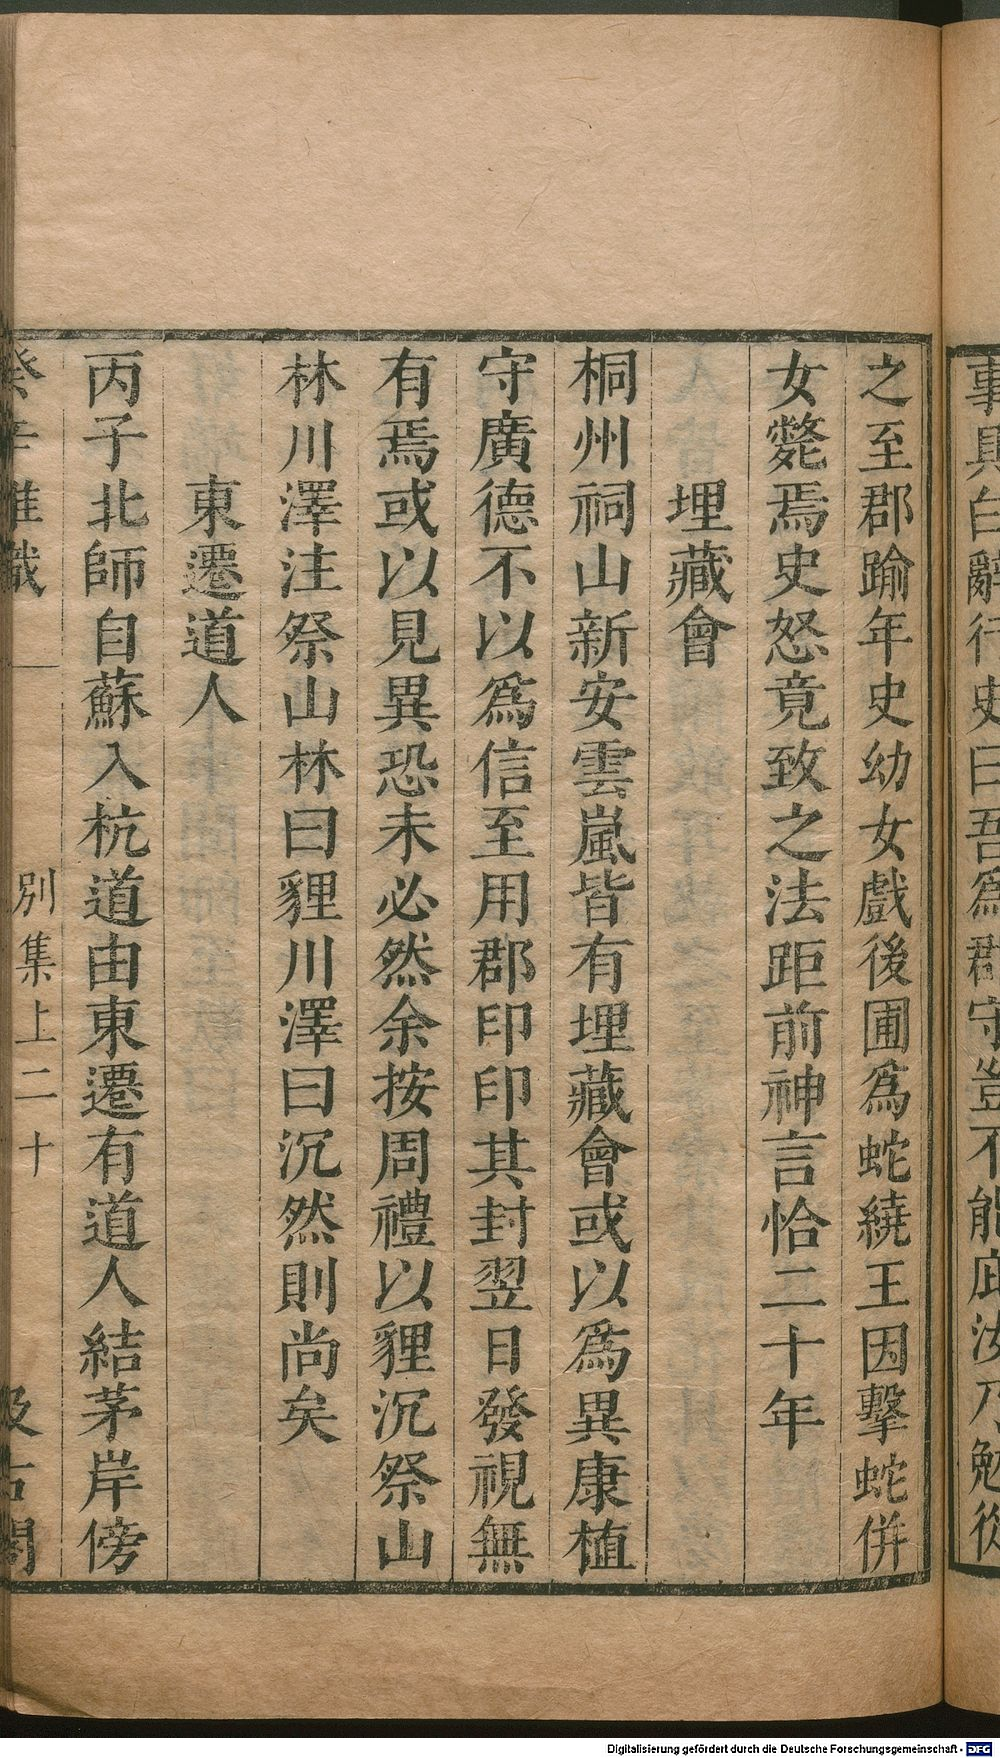 事具白辭行史曰吾為郡守豈不能庇汝乃勉從
之至郡踰年史幼女戲後圃爲蛇繞王因擊蛇併
女斃焉史怒竟致之法距前神言恰二十年
埋藏會
桐州祠山新安雲嵐皆有埋藏會或以爲異康植
守廣德不以爲信至用郡印印其封翌日發視無
有焉或以見異恐未必然余按周禮以貍沉祭山
林川澤注祭山林曰貍川澤曰沉然則尚矣
東遷道人
丙子北師自蘇入杭道由東遷有道人結茅岸傍
癸辛雜識
別集上二十
汲古閣
Digitalisierung gefördert durch die Deutsche Forschungsgemeinschaft - DFG